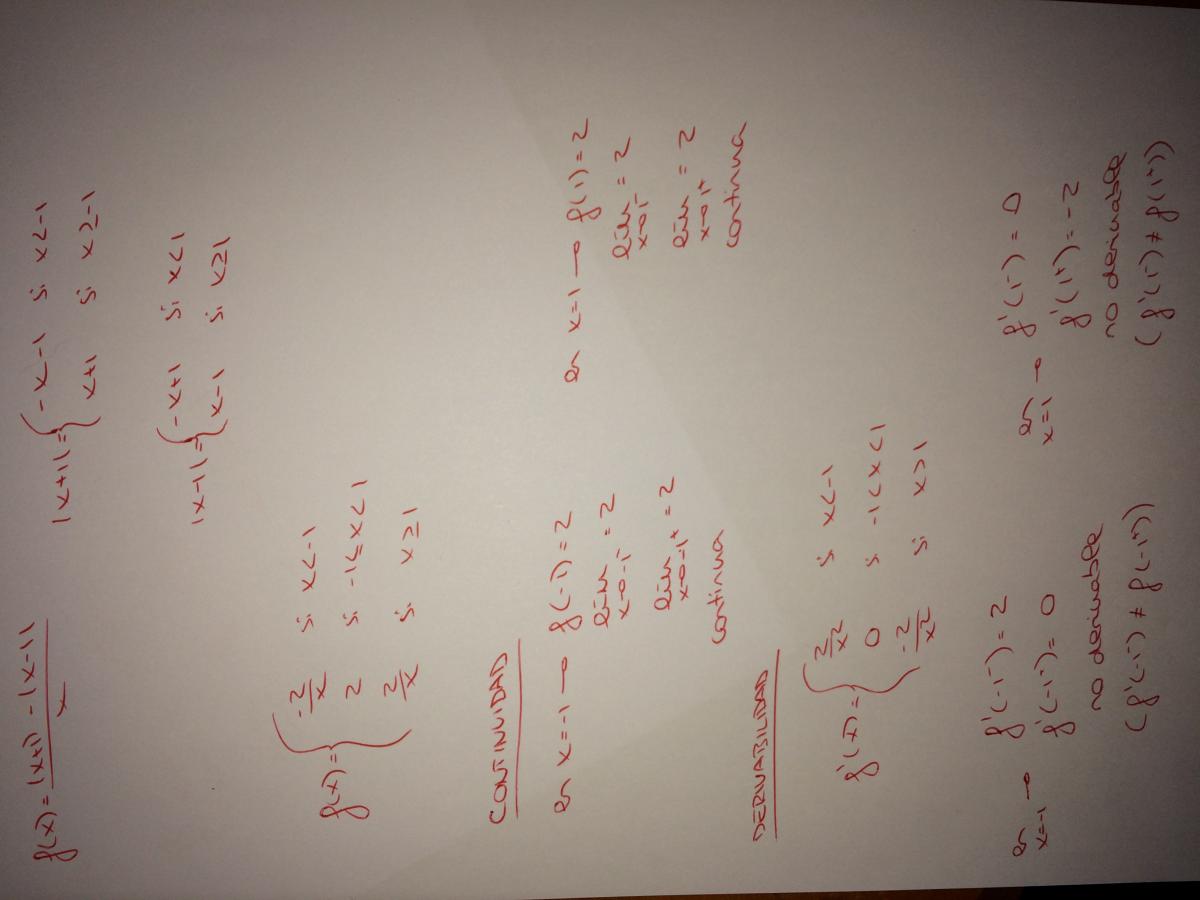 f(x) = |x+1| - |x-1| / x
|x+1| = { -x-1 si x<-1
x+1 si x≥-1
|x-1| = { -x+1 si x<1
x-1 si x≥1
f(x) = { -2/x si x<-1
2 si -1≤x<1
2/x si x≥1
CONTINUIDAD
en x=-1 → f(-1) = 2
lim x→-1⁻ = 2
lim x→-1⁺ = 2
continua
en x=1 → f(1) = 2
lim x→1⁻ = 2
lim x→1⁺ = 2
continua
DERIVABILIDAD
f'(x) = { 2/x² si x<-1
0 si -1<x<1
-2/x² si x>1
en x=-1 → f'(-1⁻) = 2
f'(-1⁺) = 0
no derivable
(f'(-1⁻) ≠ f(-1⁺))
en x=1 → f'(1⁻) = 0
f'(1⁺) = -2
no derivable
(f'(1⁻) ≠ f(1⁺))